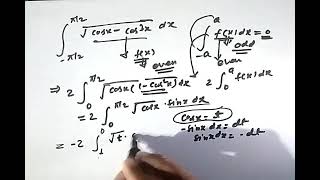 ∫_{-π/2}^{π/2} √(cosx - cos³x) dx
f(x)
even
∫_{-a}^{a} f(x) dx = 0
odd
even
⇒ 2 ∫_0^{π/2} √(cosx (1-cos²x)) dx
2 ∫_0^a f(x) dx
= 2 ∫_0^{π/2} √cosx · sinx dx
cosx = t
-sinx dx = dt
sinx dx = -dt
= -2 ∫_1^0 √t ·